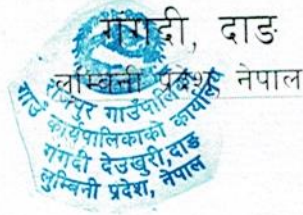 गंगदी, दाङ
लुम्बिनी प्रदेश, नेपाल
राजपुर गाउँपालिका
गाउँ कार्यपालिकाको कार्यालय
गंगदी देउखुरी, दाङ
लुम्बिनी प्रदेश, नेपाल